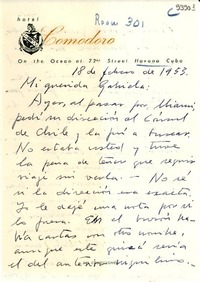 Room 301
C 9390
hotel
Comodoro
On the Ocean at 72nd Street Havana Cuba
18 de febrero de 1953.
Mi querida Gabriela:
Ayer, al pasar por Miami,
pedí su dirección al Cónsul
de Chile y la fuí a buscar.
No estaba usted y tuve
la pena de tener que seguir
viaje sin verla. — No sé
si la dirección era exacta.
Yo le dejé una nota por si
la fuera. En el buzón ha-
bía cartas con otro nombre,
aunque este quizá sería
el del anterior inquilino. —